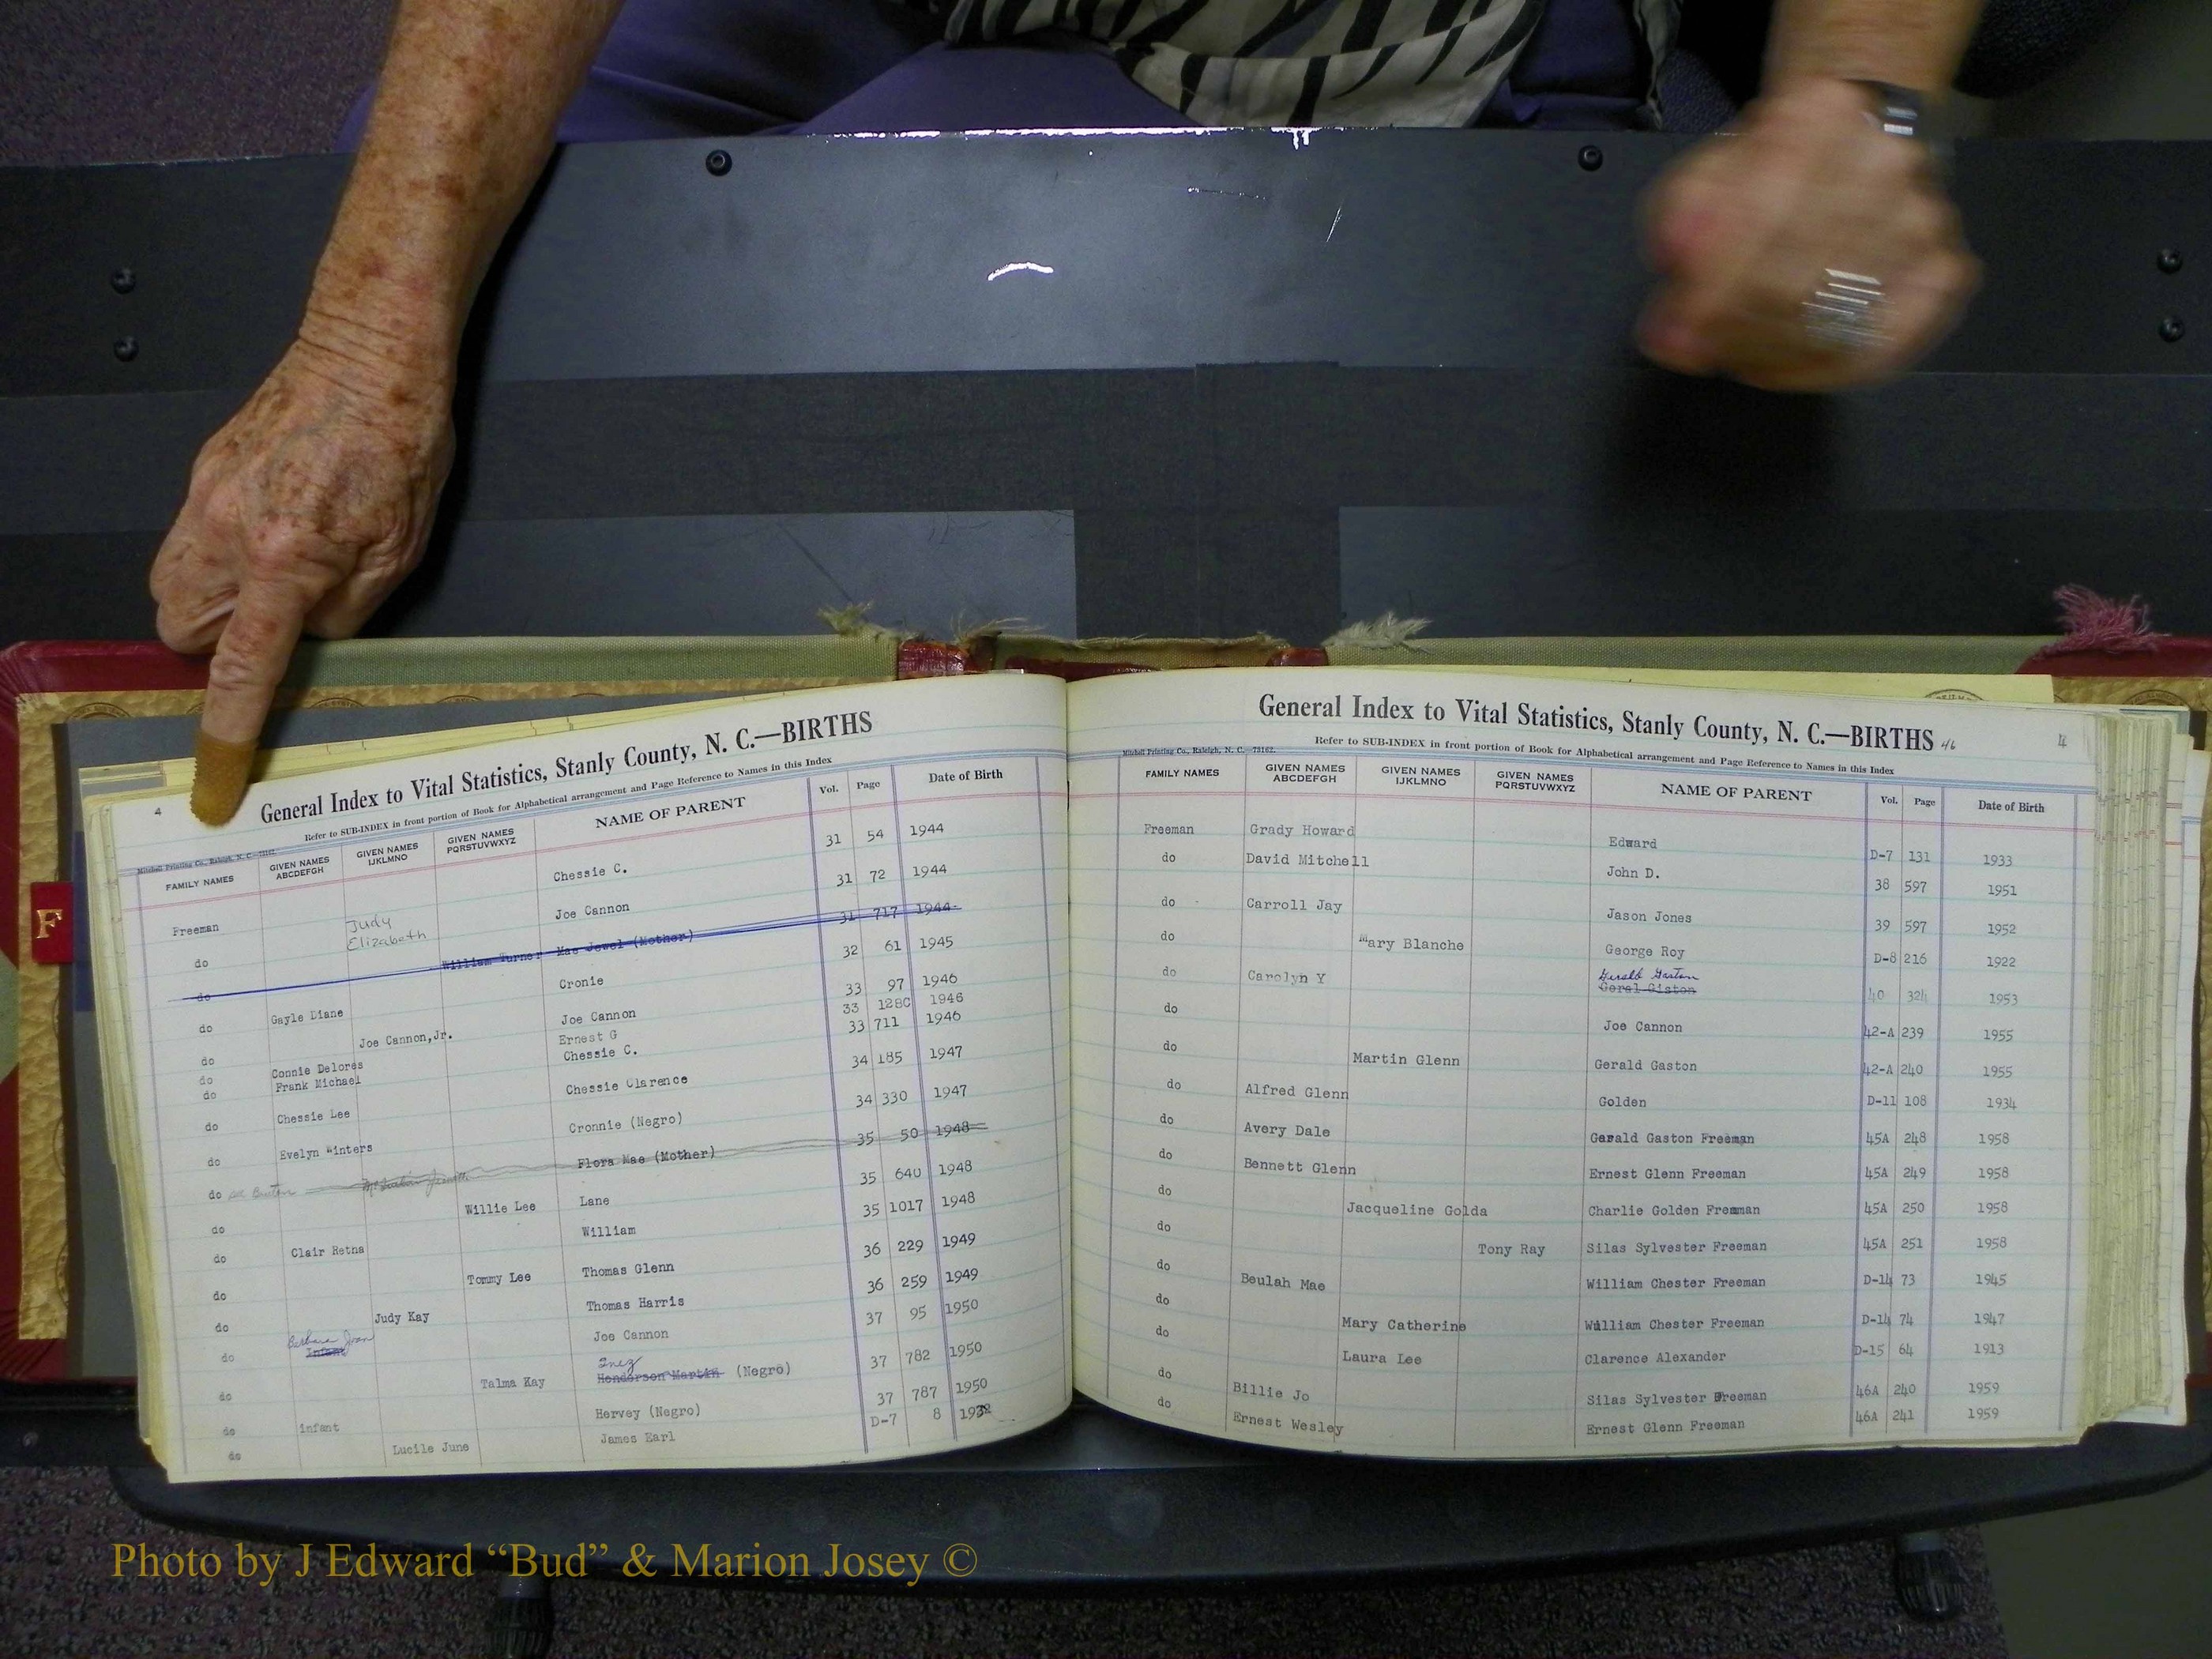 F
4
General Index to Vital Statistics, Stanly County, N. C.—BIRTHS
Refer to SUB-INDEX in front portion of Book for Alphabetical arrangement and Page Reference to Names in this Index
Mitchell Printing Co., Raleigh, N. C.
FAMILY NAMES GIVEN NAMES ABCDEFGH GIVEN NAMES IJKLMNO GIVEN NAMES PQRSTUVWXYZ NAME OF PARENT Vol. Page Date of Birth
Freeman Chessie C. 31 54 1944
do Judy Elizabeth Joe Cannon 31 72 1944
do William Turner Mae Jewel (Mother) 31 717 1944
do Gayle Diane Cronie 32 61 1945
do Joe Cannon,Jr. Joe Cannon 33 97 1946
do Connie Delores Ernest G 33 128C 1946
do Frank Michael Chessie C. 33 711 1946
do Chessie Lee Chessie Clarence 34 185 1947
do Evelyn Winters Cronnie (Negro) 34 330 1947
do Flora Mae (Mother) 35 50 1948
do Willie Lee Lane 35 640 1948
do Clair Retna William 35 1017 1948
do Tommy Lee Thomas Glenn 36 229 1949
do Judy Kay Thomas Harris 36 259 1949
do Barbara Jean Infant Joe Cannon 37 95 1950
do Talma Kay Inez Henderson Martin (Negro) 37 782 1950
do infant Hervey (Negro) 37 787 1950
do Lucile June James Earl D-7 8 1932
General Index to Vital Statistics, Stanly County, N. C.—BIRTHS 46 4
Refer to SUB-INDEX in front portion of Book for Alphabetical arrangement and Page Reference to Names in this Index
Mitchell Printing Co., Raleigh, N. C.—73162.
FAMILY NAMES GIVEN NAMES ABCDEFGH GIVEN NAMES IJKLMNO GIVEN NAMES PQRSTUVWXYZ NAME OF PARENT Vol. Page Date of Birth
Freeman Grady Howard Edward D-7 131 1933
do David Mitchell John D. 38 597 1951
do Carroll Jay Jason Jones 39 597 1952
do Mary Blanche George Roy D-8 216 1922
do Carolyn Y Gerald Gaston Geral Giston 40 324 1953
do Joe Cannon 42-A 239 1955
do Martin Glenn Gerald Gaston 42-A 240 1955
do Alfred Glenn Golden D-11 108 1934
do Avery Dale Gerald Gaston Freeman 45A 248 1958
do Bennett Glenn Ernest Glenn Freeman 45A 249 1958
do Jacqueline Golda Charlie Golden Freeman 45A 250 1958
do Tony Ray Silas Sylvester Freeman 45A 251 1958
do Beulah Mae William Chester Freeman D-14 73 1945
do Mary Catherine William Chester Freeman D-14 74 1947
do Laura Lee Clarence Alexander D-15 64 1913
do Billie Jo Silas Sylvester Freeman 46A 240 1959
do Ernest Wesley Ernest Glenn Freeman 46A 241 1959
Photo by J Edward “Bud” & Marion Josey ©